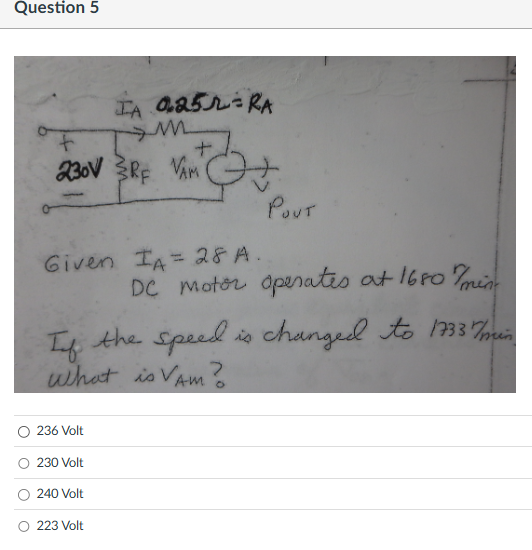 Question 5
I_A 0.25Ω = R_A
+ + 
230V R_F V_AM
−
P_OUT
Given I_A = 28 A.
DC Motor operates at 1680 r/min
If the speed is changed to 1733 r/min,
what is V_AM?
236 Volt
230 Volt
240 Volt
223 Volt